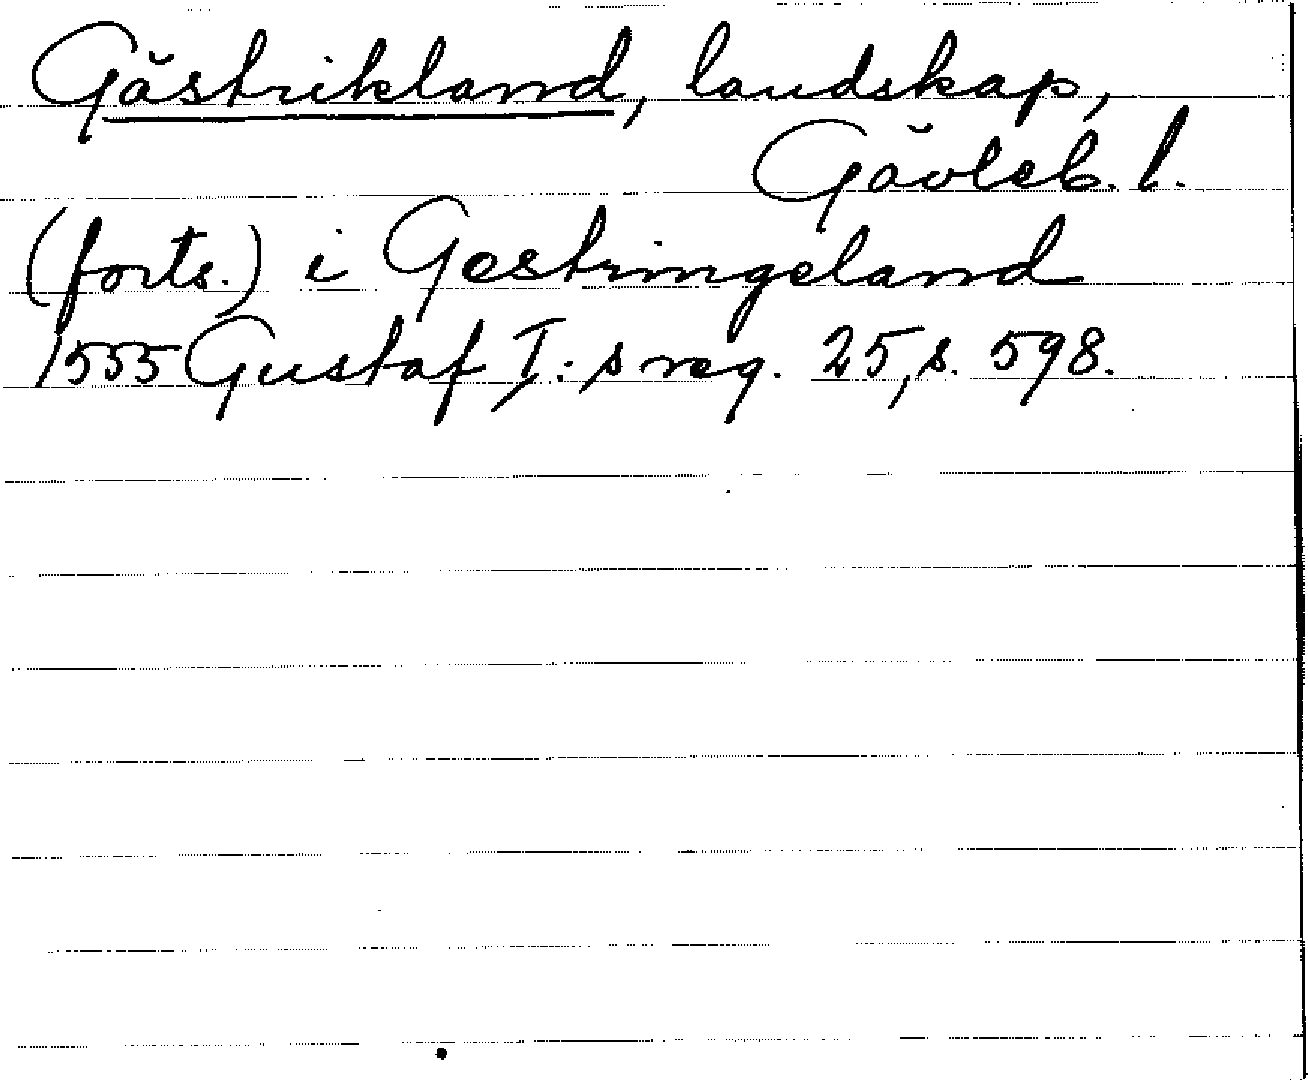 Gästrikland, landskap,
Gävleb. l.
(forts.) i Gestringeland
1555 Gustaf I:s reg. 25, s. 598.